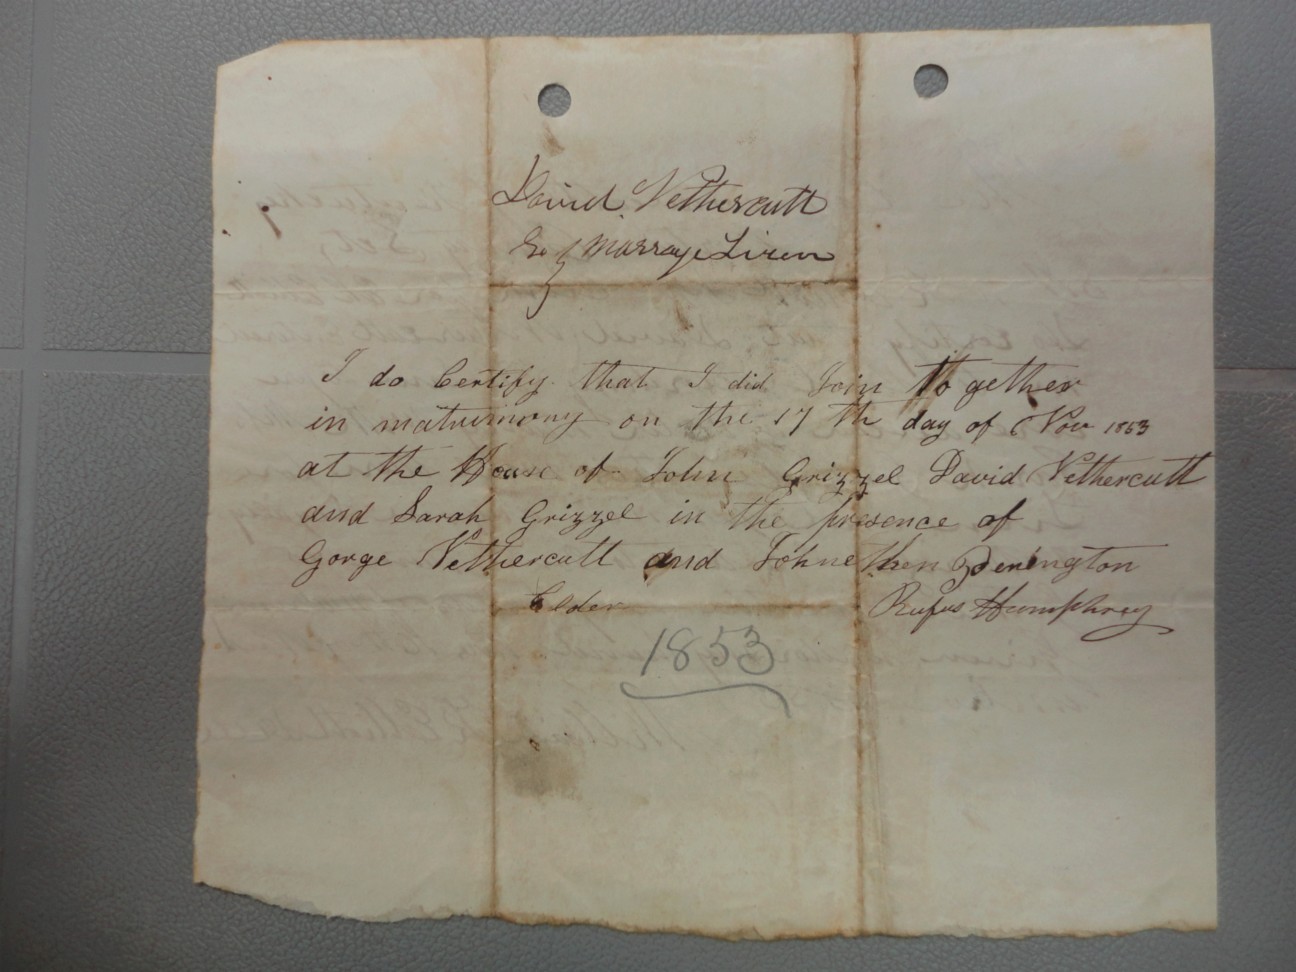 David Nethercutt
Marrage Licen
I do Certify that I did Join to gether
in matrimony on the 17 th day of Nov 1853
at the House of John Grizzel David Nethercutt
and Sarah Grizzel in the presence of
Gorge Nethercutt and Johnethen Penington
Elder Rufus Humphrey
1853